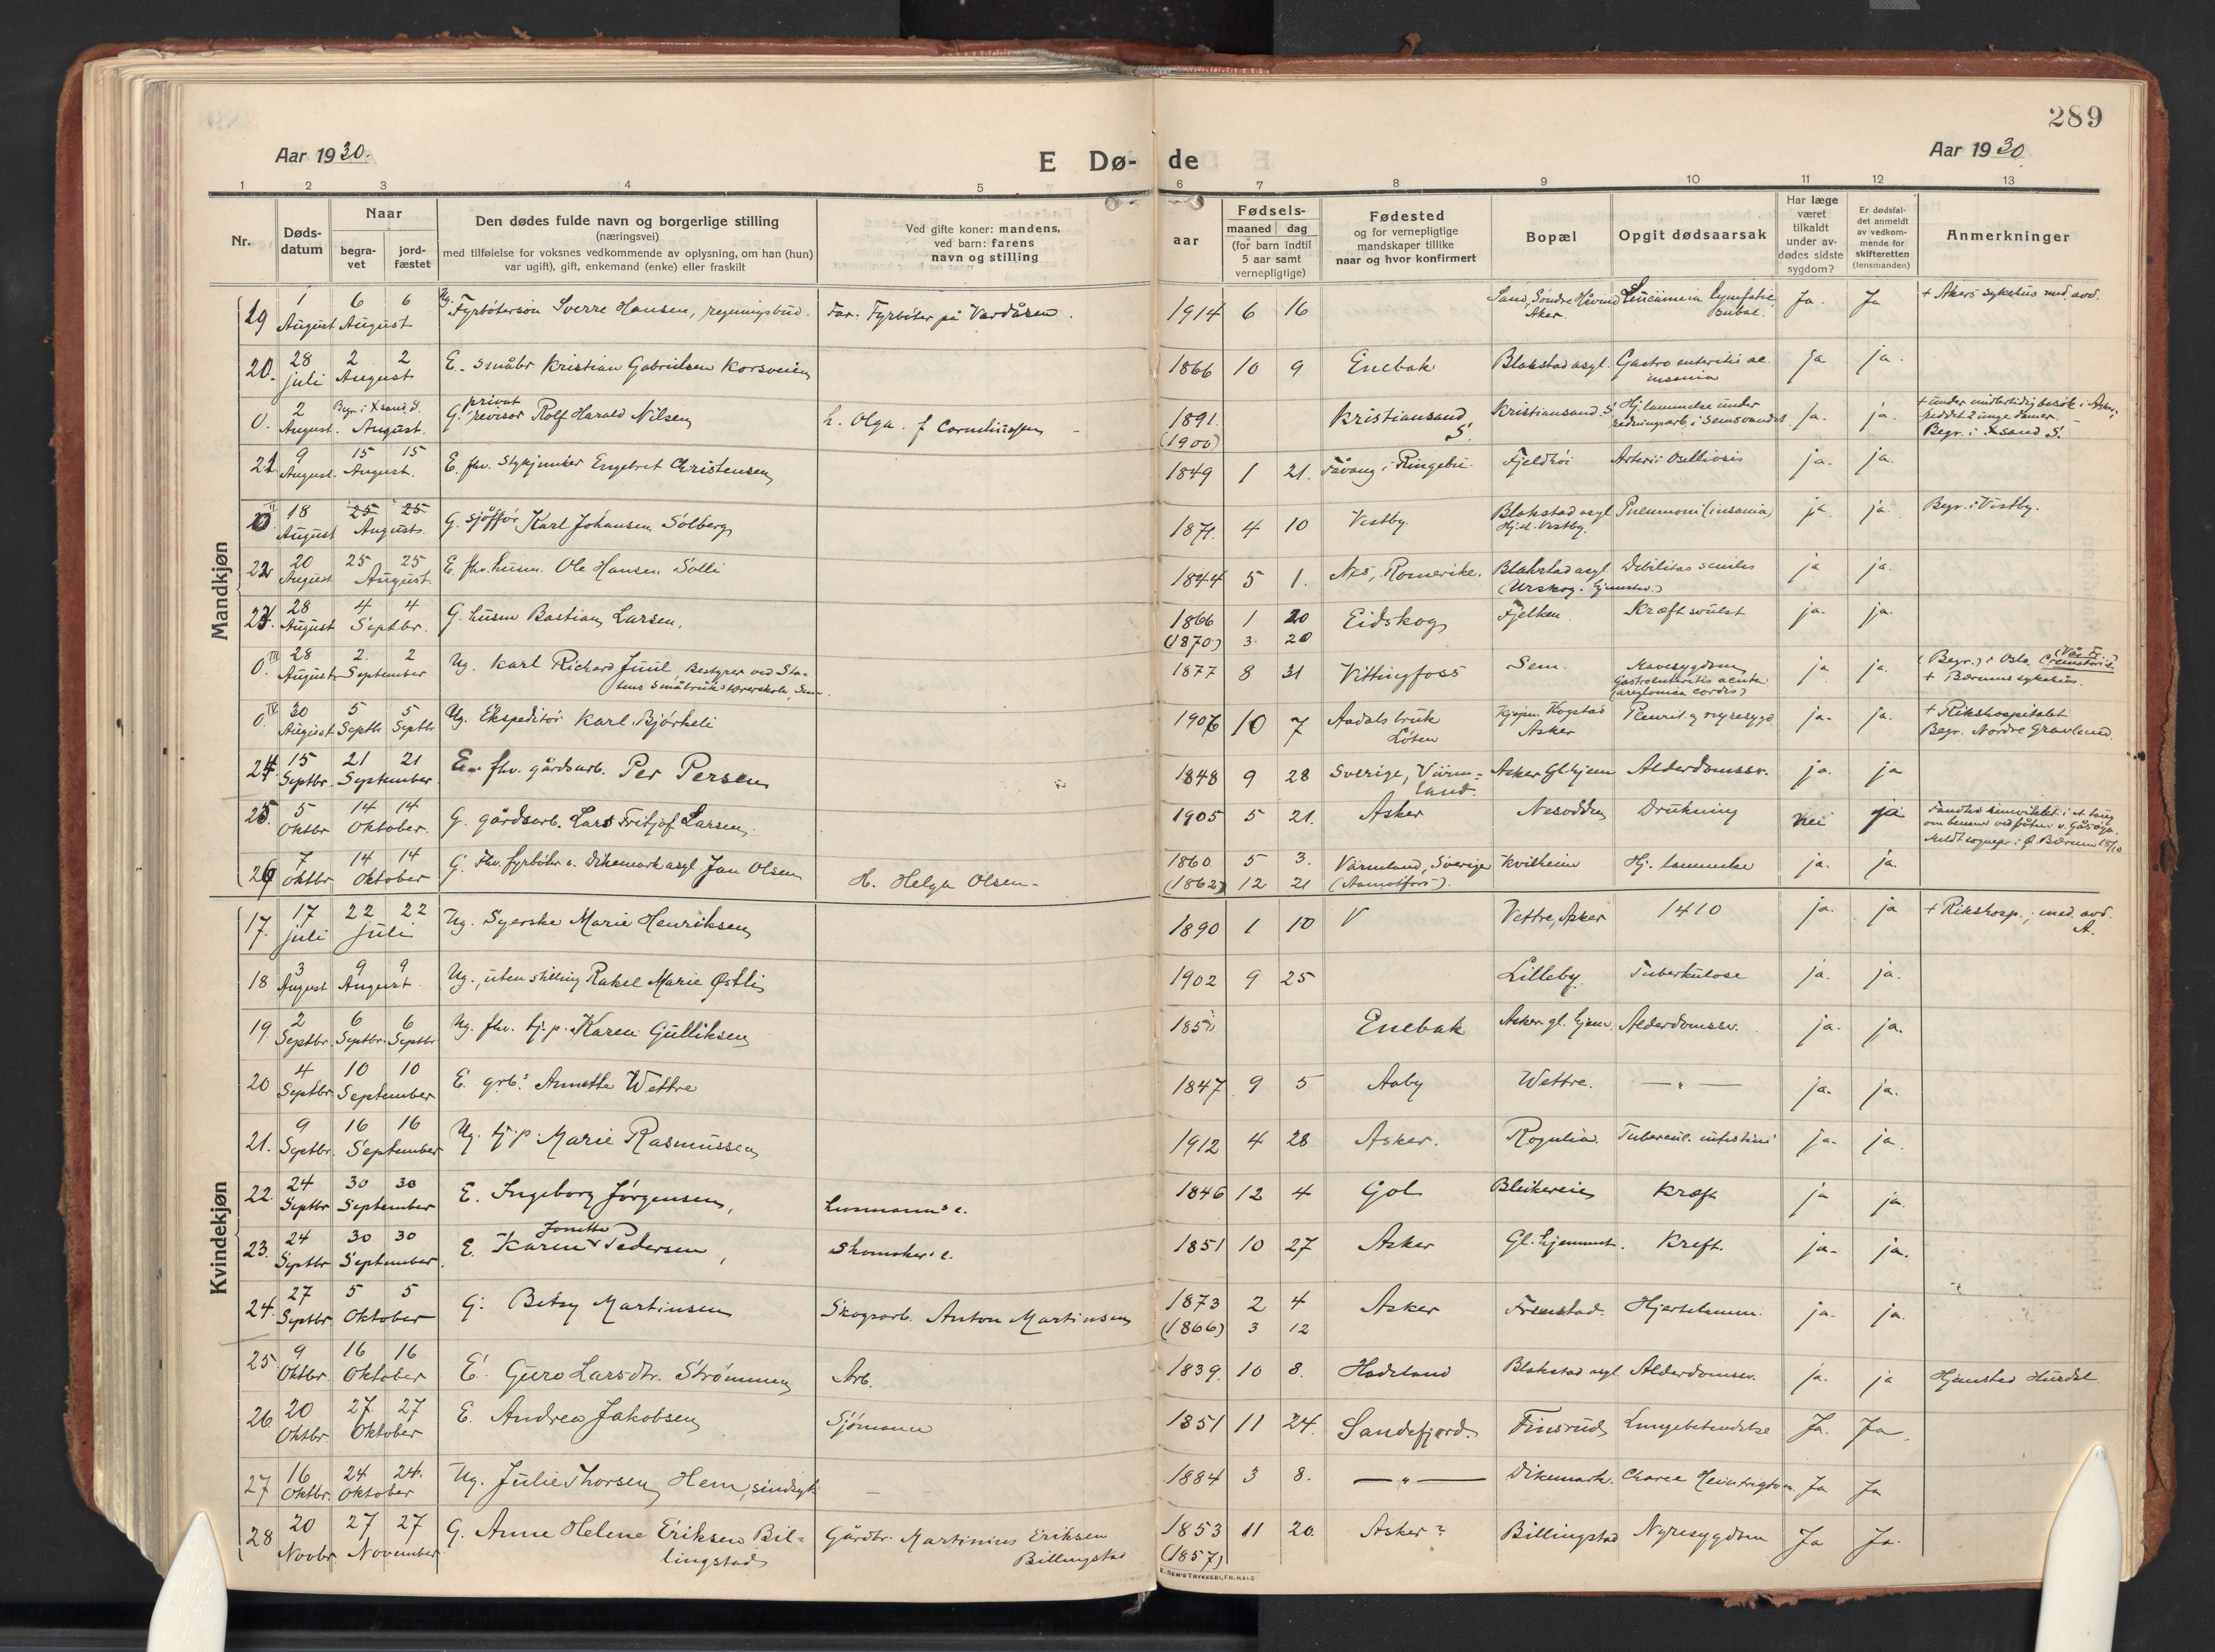 289
Aar 1930.
E Dø- de
Aar 1930
1 2 3 4 5 6 7 8 9 10 11 12 13
Nr.
Døds-
datum
Naar
begra-
vet
jord-
fæstet
Den dødes fulde navn og borgerlige stilling
(næringsvei)
med tilføielse for voksnes vedkommende av oplysning, om han (hun)
var ugift), gift, enkemand (enke) eller fraskilt
Ved gifte koner: mandens,
ved barn: farens
navn og stilling
aar
Fødsels-
maaned dag
(for barn indtil
5 aar samt
vernepligtige)
Fødested
og for vernepligtige
mandskaper tillike
naar og hvor konfirmert
Bopæl
Opgit dødsaarsak
Har læge
været
tilkaldt
under av-
dødes sidste
sygdom?
Er dødsfal-
det anmeldt
av vedkom-
mende for
skifteretten
(lensmanden)
Anmerkninger
Mandkjøn
19 1 August 6 August 6 Ug. Fyrbøterson Sverre Hansen, regningsbud. Far. Fyrbøter på Vardåsen. 1914 6 16 Sand, Søndre Aker. Ja. Ja + Akers sykehus med. avd.
20. 28 juli 2 August 2 E. småbr Kristian Gabrielsen Korsveien 1866 10 9 Enebak Blakstad asyl. Gastro enteritis ac. insania ja ja.
0. 2 August. Begr. i Xsand S. August. G. privat revisor Rolf Harald Nilsen h. Olga. f. Corneliussen 1891. (1900) Kristiansand S. Kristiansand S. Hj. lammelse under redningsarb. i Semsvandet. ja. ja. + under midlertidig besök i Asker, reddet 2 unge damer. Begr. i Xsand S.
21 9 August. 15 August. 15 E. fhv. Engebret Christensen 1849 1 21. Fåvang i Ringebu. Fjeldhöi ja. ja.
0. II 18 August 25 August 25 G. sjåffør Karl Johansen Solberg 1871. 4 10 Vestby. Blakstad asyl Hj.st. Vestby. Pneumoni (insania) ja ja. Begr. i Vestby.
22 20 August 25 August 25 E. fhv. husm. Ole Hansen Solli 1844 5 1. Nes, Romerike. Blakstad asyl (Urskog. hjemsted.) Debilitas senilis ja ja.
23. 28 August 4 Septbr. 4 G. husm Bastian Larsen. 1866 1 20 (1870) 3 20 Eidskog Fjelken. Kræftsvulst ja. ja.
0. III 28 August 2. September 2 Ug. Karl Richard Juul Bestyrer ved Sta-
tens småbrukslærerskole, Sem. 1877 8 31 Vittingfoss Sem. Mavesygdom Gastroenteritis acuta ja ja. (Begr.) i Oslo (Vår Fr.) Crematorie. + Bærums sykehus.
0. IV 30 August 5 Septbr 5 Septbr Ug. Ekspeditör Karl Bjørkeli 1906 10 7 Aadals bruk Löten Kjøpm. Kogstad Asker Pleurit. og nyresygd. ja. ja. + Rikshospitalet Begr. Nordre Gravlund.
24. 15 Septbr. 21 September 21 E. fhv. gårdsarb. Per Persen 1848 9 28 Sverige, Värm-
land. Asker Gl.hjem Alderdomssv. ja. ja
25. 5 Oktbr 14 Oktober. 14 G. gårdsarb. Lars Fritjof Larsen. 1905 5 21. Asker Nesodden Drukning nei ja Fandtes innviklet i et taug om benene ved båten v. Gåsöya. Meldt sogneprest i Ø. Bærum 15/10
26 7 Oktbr 14 Oktober 14 G. Fhv. fyrböter v. Dikemark asyl Jan Olsen H. Helga Olsen. 1860 5 3. (1862) 12 21 Värmland, Sverige (Aamotfors). Kvilheim Hj. lammelse ja. ja.
Kvindekjøn
17. 17 juli 22 juli 22 Ug. Syerske Marie Henriksen 1890 1 10 V Vettre, Asker 1410 ja. ja + Rikshosp., med. avd. A.
18 3 August 9 August 9 Ug., uten stilling Rakel Marie Østli 1902 9 25 Lilleby. Tuberkulose ja. ja.
19. 2 Septbr. 6 Septbr. 6 Septbr Ug. fhv. tj.p. Karen Gulliksen Enebak Asker gl. hjem. Alderdomssv. ja. ja.
20 4 Septbr. 10 September 10 E. grbs Annette Wettre 1847 9 5 Aaby Wettre. — " — ja. ja.
21. 9 Septbr. 16 September 16 Ug. tj.p. Marie Rasmussen 1912 4 28 Asker. Rognlia. Tubercul. intestini ja. ja.
22. 24 Septbr 30 September 30 E. Ingeborg Jørgensen, husmanns e. 1846 12 4 Gol Bleikereie Kræft ja ja.
23. 24 Septbr 30 September. 30 E. Karen Jonette Pedersen, Skomaker e. 1851 10 27 Asker Gl. hjemmet. Kreft. ja. ja.
24. 27 Septbr 5 Oktober 5 G. Betsy Martinsen Skogsarb. Anton Martinsen 1873 2 4 (1866) 3 12 Asker Fremstad. Hjertelamm. ja. ja.
25. 9 Oktbr. 16 Oktober 16 E. Guro Larsdtr. Strømmen Arb. 1839. 10 8. Hadeland Blakstad asyl. Alderdomssv. ja. ja Hjemsted Hurdal
26 20 Oktbr. 27. Oktober 27 E. Andrea Jakobsen Sjömann 1851 11 24. Sandefjord. Finsrud Lungebetendelse Ja. Ja.
27 16 Oktbr. 24 Oktober 24. Ug. Julie Thorsen Hem, sindsyk — 1884 3 8. — " — Dikemark. Ja Ja
28 20 Novbr 27 November 27 G. Anne Helene Eriksen Bil-
lingstad Gårdbr. Martinius Eriksen Billingstad 1853 11 20. (1857) Asker? Billingstad Nyresygdom Ja Ja.
E. SEM'S TRYKKERI, FR.HALD